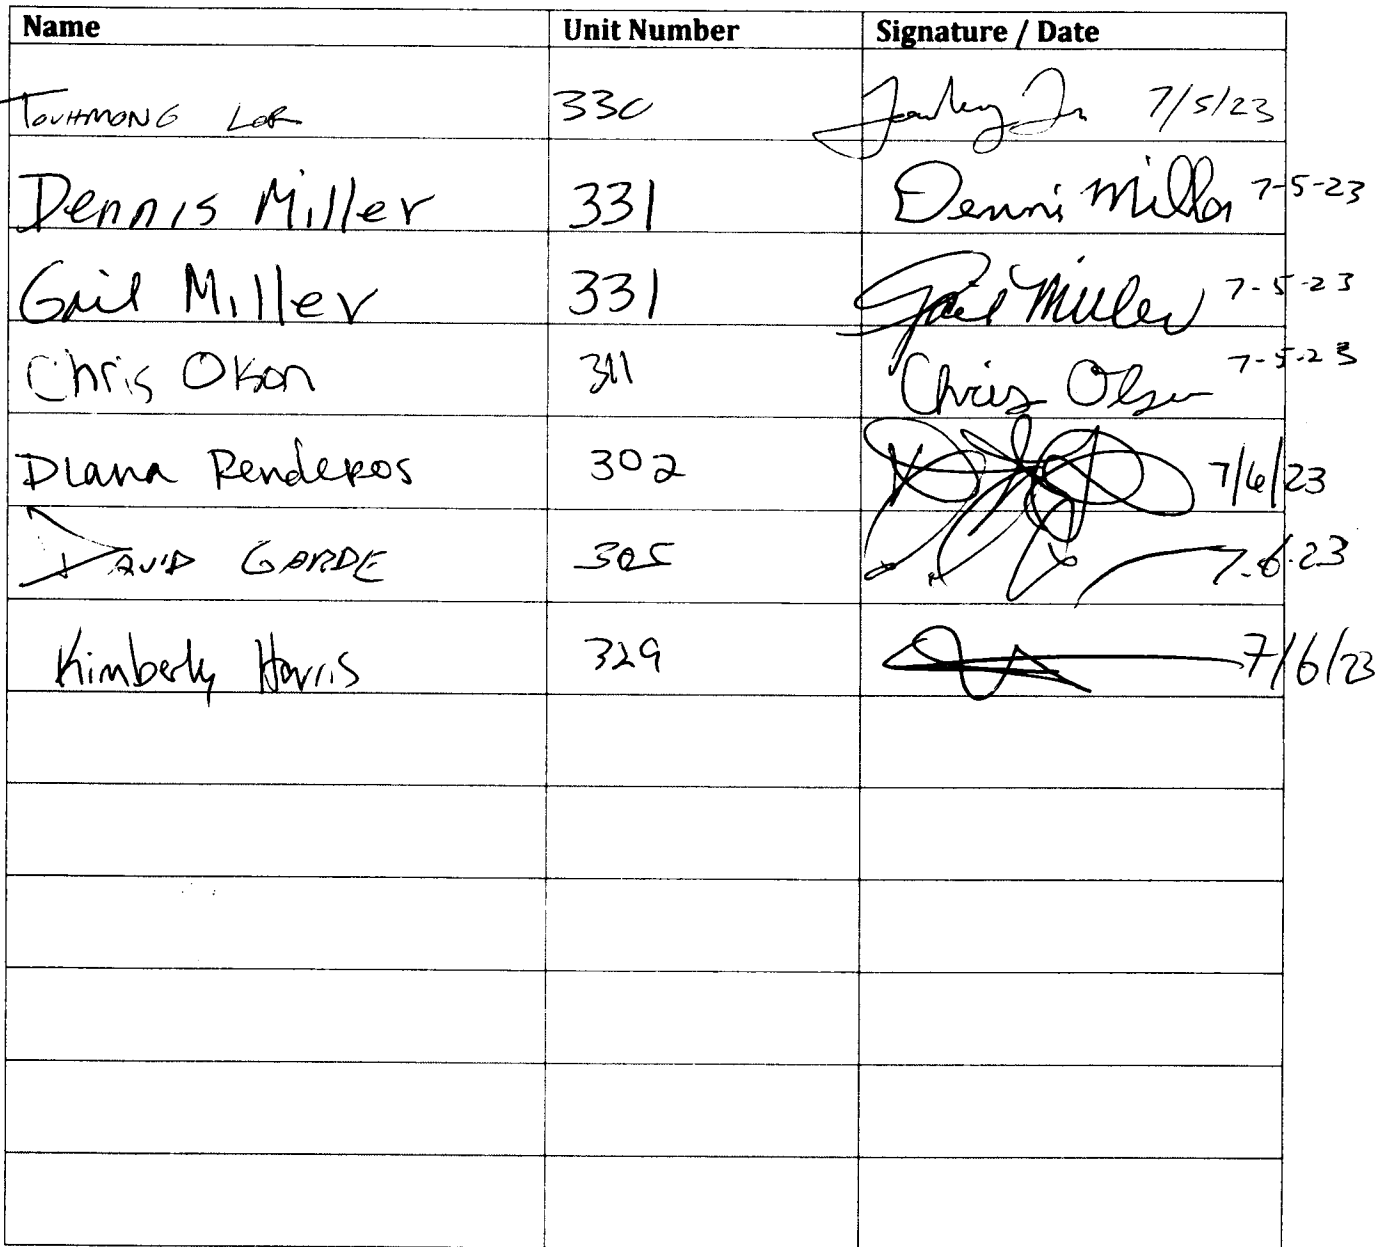 Name Unit Number Signature / Date
TOUHMONG LOR 330 7/5/23
Dennis Miller 331 Dennis Miller 7-5-23
Gail Miller 331 Gail Miller 7-5-23
Chris Olson 311 Chris Olson 7-5-23
Diana Renderos 302 7/6/23
DAVID GARDE 305 7.6.23
Kimberly Harris 329 7/6/23